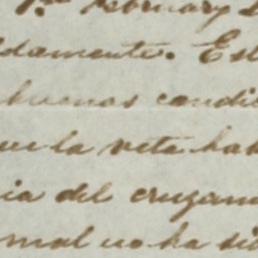 February
damente. Est
buenas condi
que la veta ha
ia del cruzam
mal no ha si